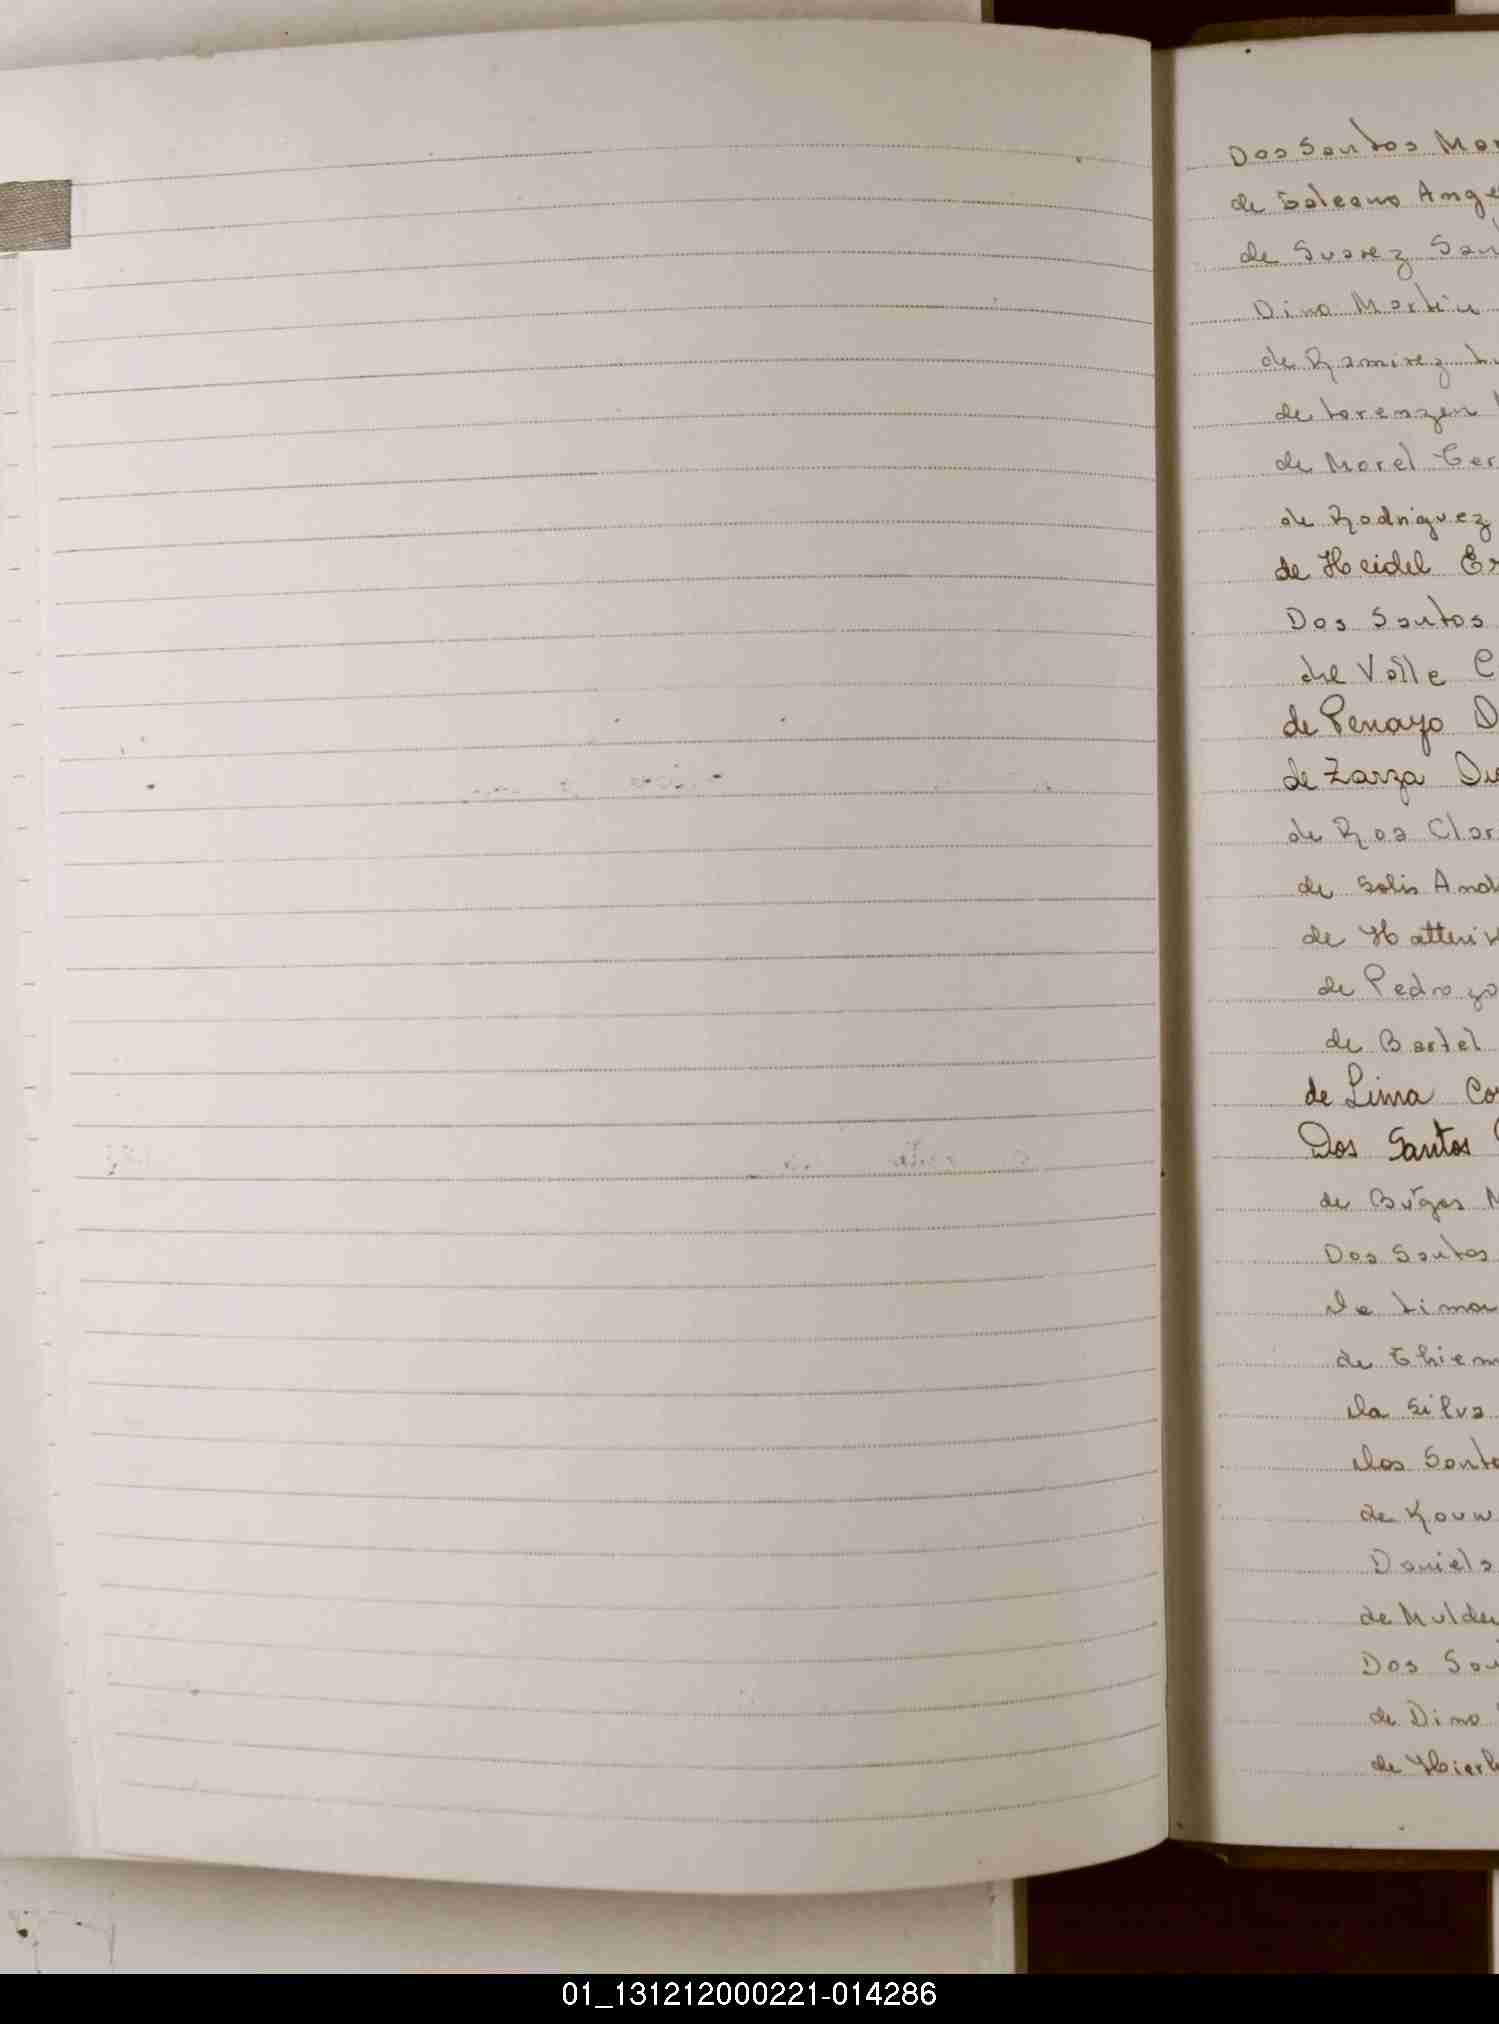 Dos Santos Mar
de Galeano Ange
de Suarez San
Dino Martin
de Ramirez
de Lorenzen
de Morel Ger
de Rodriguez
de Heidel Er
Dos Santos
del Valle C
de Penayo D
de Zarza Du
de Roa Clar
de Solis And
de Hatteri
de Pedrozo
de Bartel
de Lima Co
Dos Santos
de Bugos M
Dos Santos
de Lima
de Thiem
Da Silva
Dos Santo
de Kouw
Daniels
de Mulder
Dos San
de Dimo
de Hierh
01_131212000221-014286